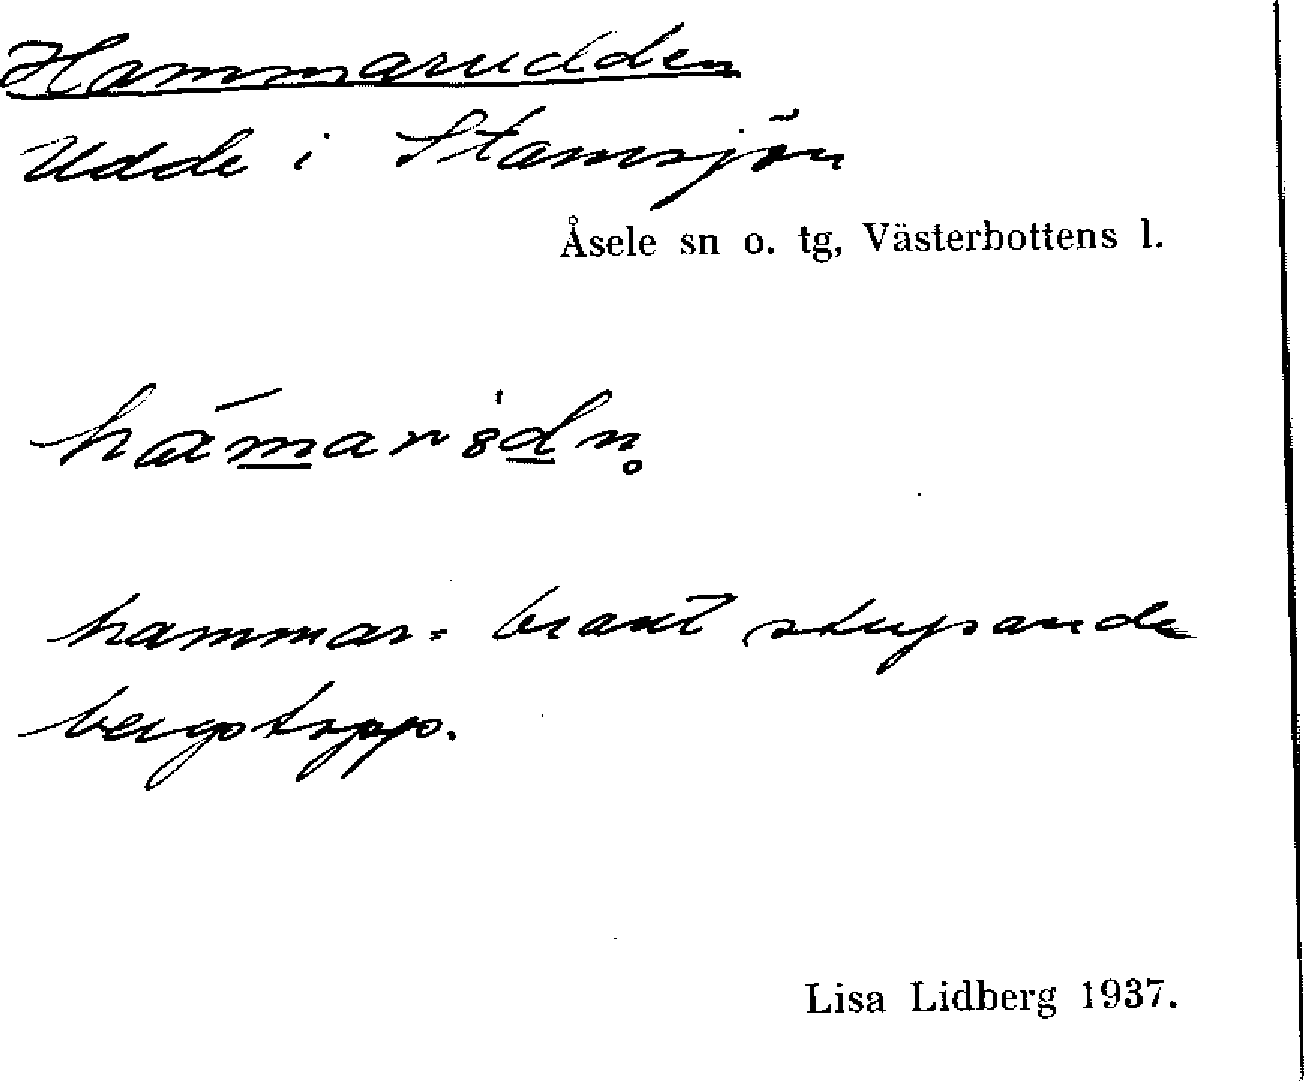 Hammarudden
Udde i Stamsjön
Åsele sn o. tg, Västerbottens l.
hámar8̍dn̥
hammar = brant stupande
bergstopp.
Lisa Lidberg 1937.